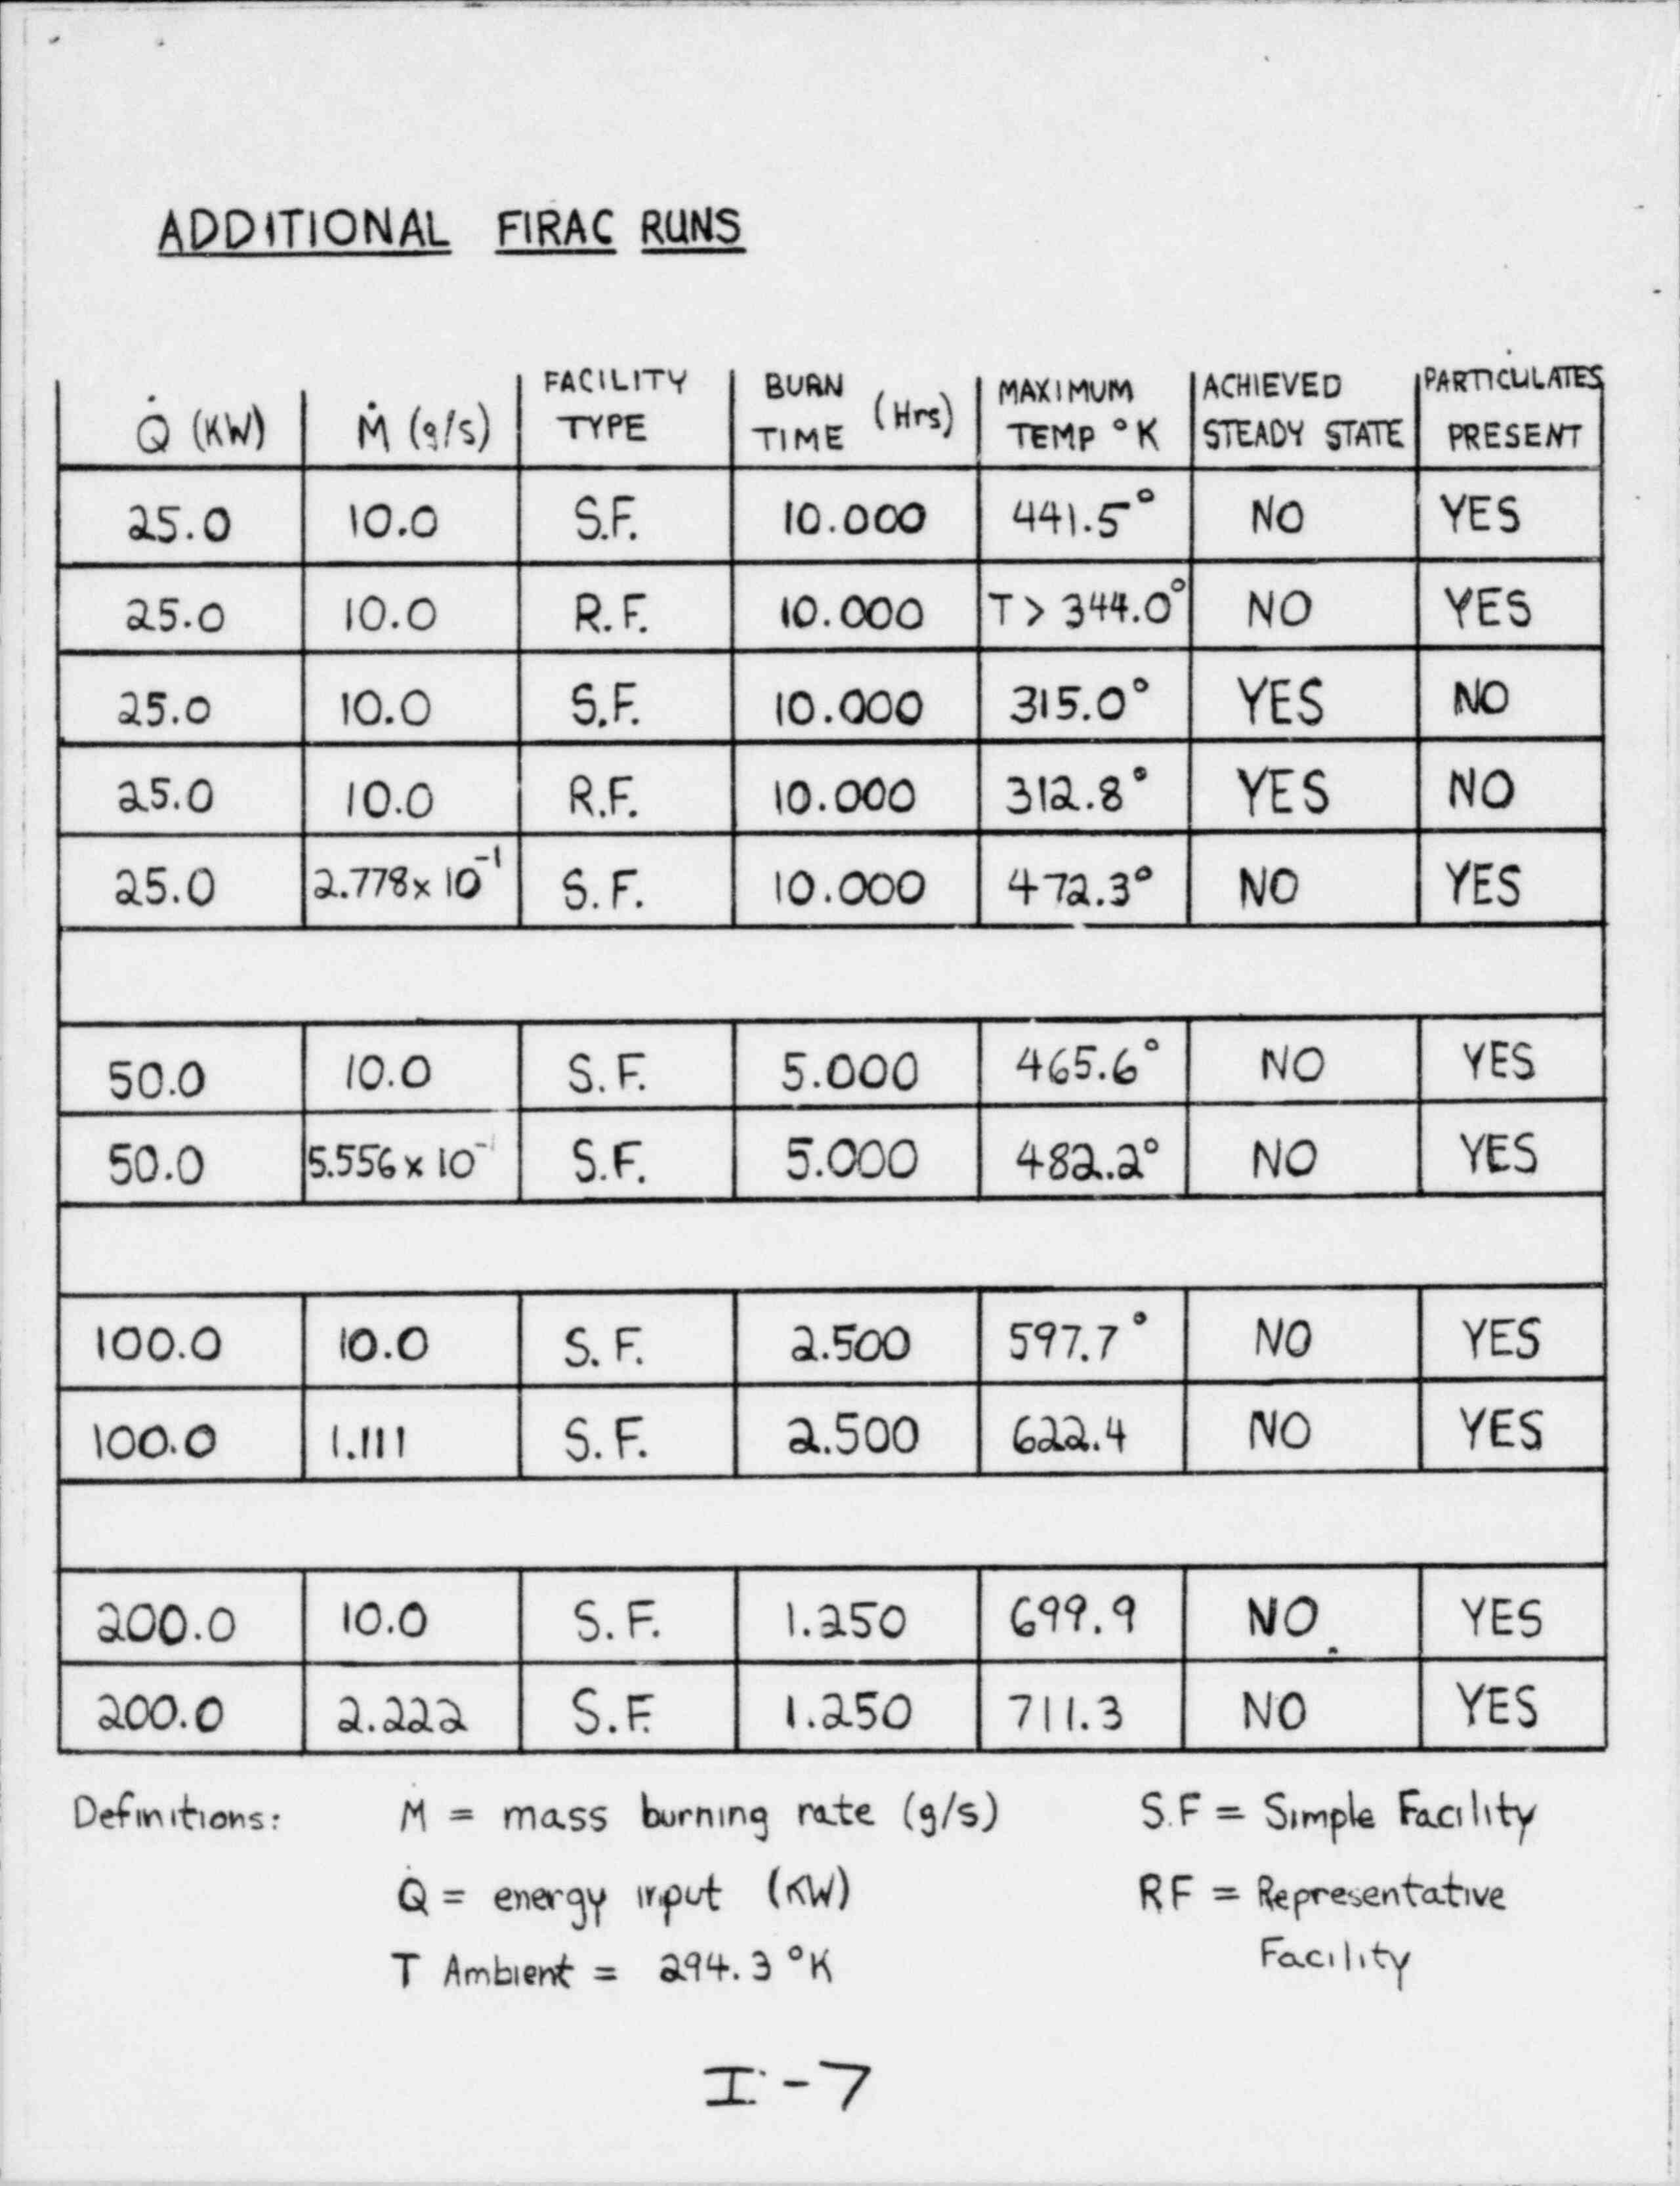 ADDITIONAL FIRAC RUNS
Q̇ (KW) Ṁ (g/s) FACILITY TYPE BURN TIME (Hrs) MAXIMUM TEMP °K ACHIEVED STEADY STATE PARTICULATES PRESENT
25.0 10.0 S.F. 10.000 441.5° NO YES
25.0 10.0 R.F. 10.000 T > 344.0° NO YES
25.0 10.0 S.F. 10.000 315.0° YES NO
25.0 10.0 R.F. 10.000 312.8° YES NO
25.0 2.778 x 10⁻¹ S.F. 10.000 472.3° NO YES
50.0 10.0 S.F. 5.000 465.6° NO YES
50.0 5.556 x 10⁻¹ S.F. 5.000 482.2° NO YES
100.0 10.0 S.F. 2.500 597.7° NO YES
100.0 1.111 S.F. 2.500 622.4 NO YES
200.0 10.0 S.F. 1.250 699.9 NO. YES
200.0 2.222 S.F. 1.250 711.3 NO YES
Definitions: Ṁ = mass burning rate (g/s) S.F = Simple Facility
Q̇ = energy input (KW) RF = Representative
Facility
T Ambient = 294.3 °K
I-7